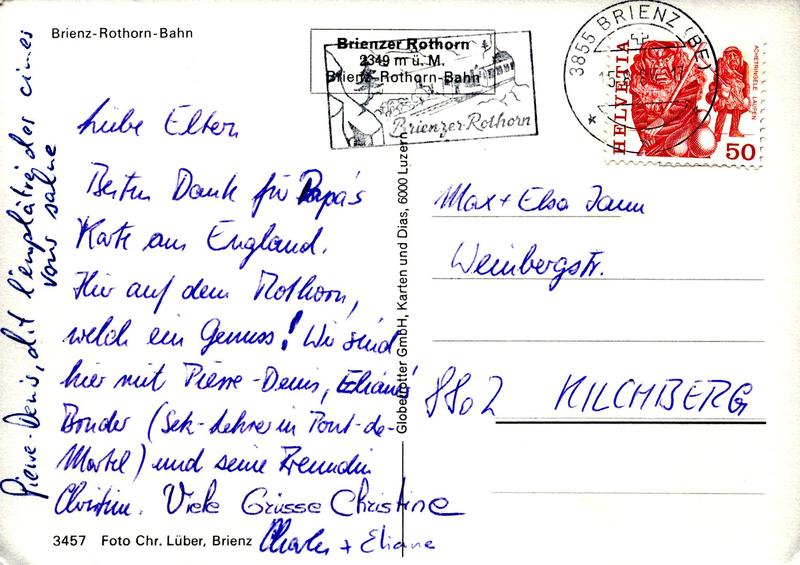 Brienz-Rothorn-Bahn
Brienzer Rothorn
2349 m ü. M.
Brienz-Rothorn-Bahn
Brienzer-Rothorn
3855 BRIENZ (BE)
HELVETIA
ACHETRINGELE LAUPEN
50
Liebe Eltern
Besten Dank für Papa's
Karte aus England.
Hier auf dem Rothorn,
welch ein Genuss! Wir sind
hier mit Pierre-Denis, Eliane's
Bruder (Sek-Lehrer in Pont-de-
Martel) und seine Freundin
Christine. Viele Grüsse Christine
Charles + Eliane
Pierre-Denis, dit l'emplâtré des cimes
vous salue
Globetrotter GmbH, Karten und Dias, 6000 Luzern
Max + Elsa Jann
Weinbergstr.
8802 KILCHBERG
3457 Foto Chr. Lüber, Brienz